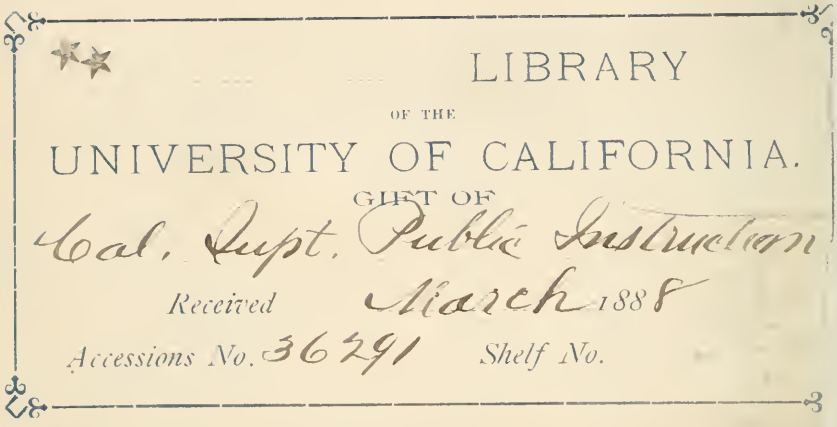 LIBRARY
OF THE
UNIVERSITY OF CALIFORNIA.
GIFT OF
Cal. Supt. Public Instruction
Received March 1888
Accessions No. 36291 Shelf No.